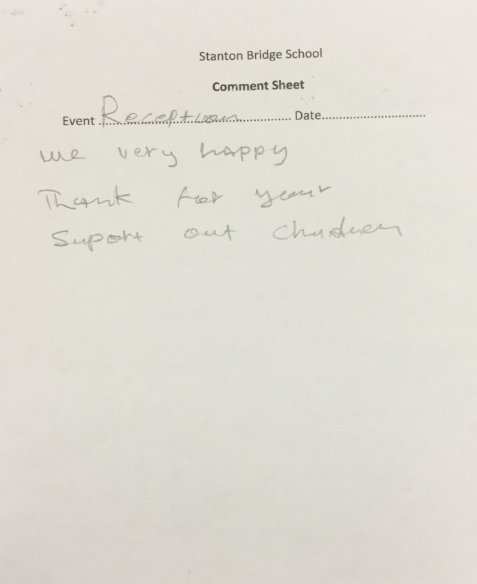 Stanton Bridge School
Comment Sheet
Event Reception Date
we very happy
Thank for your
Suport out Children